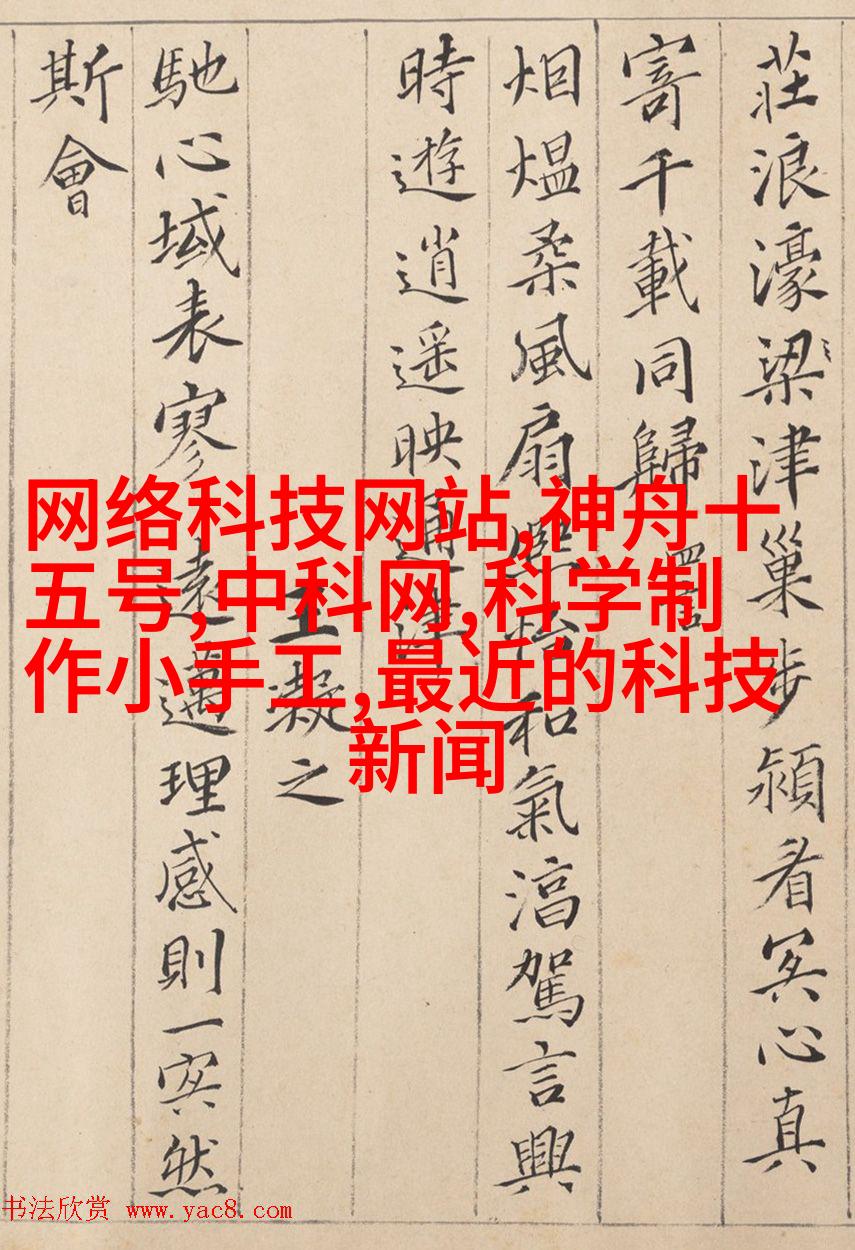 莊浪濠梁津巢步潁看冥心真
寄千載同歸
烟煴柔風扇熙怡和氣淯駕言興
時遊逍遥映通津
王凝之
馳心域表寥遠邁理感則一冥然
斯會
网络科技网站,神舟十
五号,中科网,科学制
作小手工,最近的科技
新闻
书法欣赏 www.yac8.com